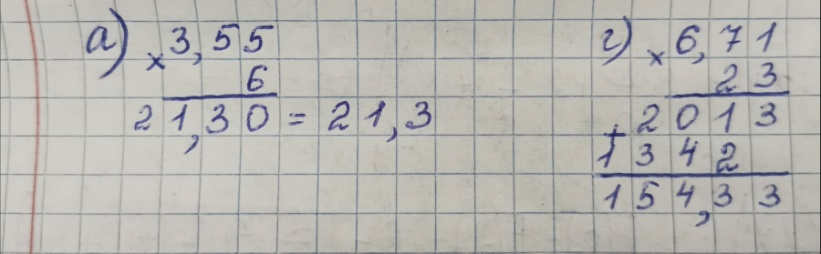 а) × 3,55
6
21,30 = 21,3
г) × 6,71
23
+ 2013
1342
154,33